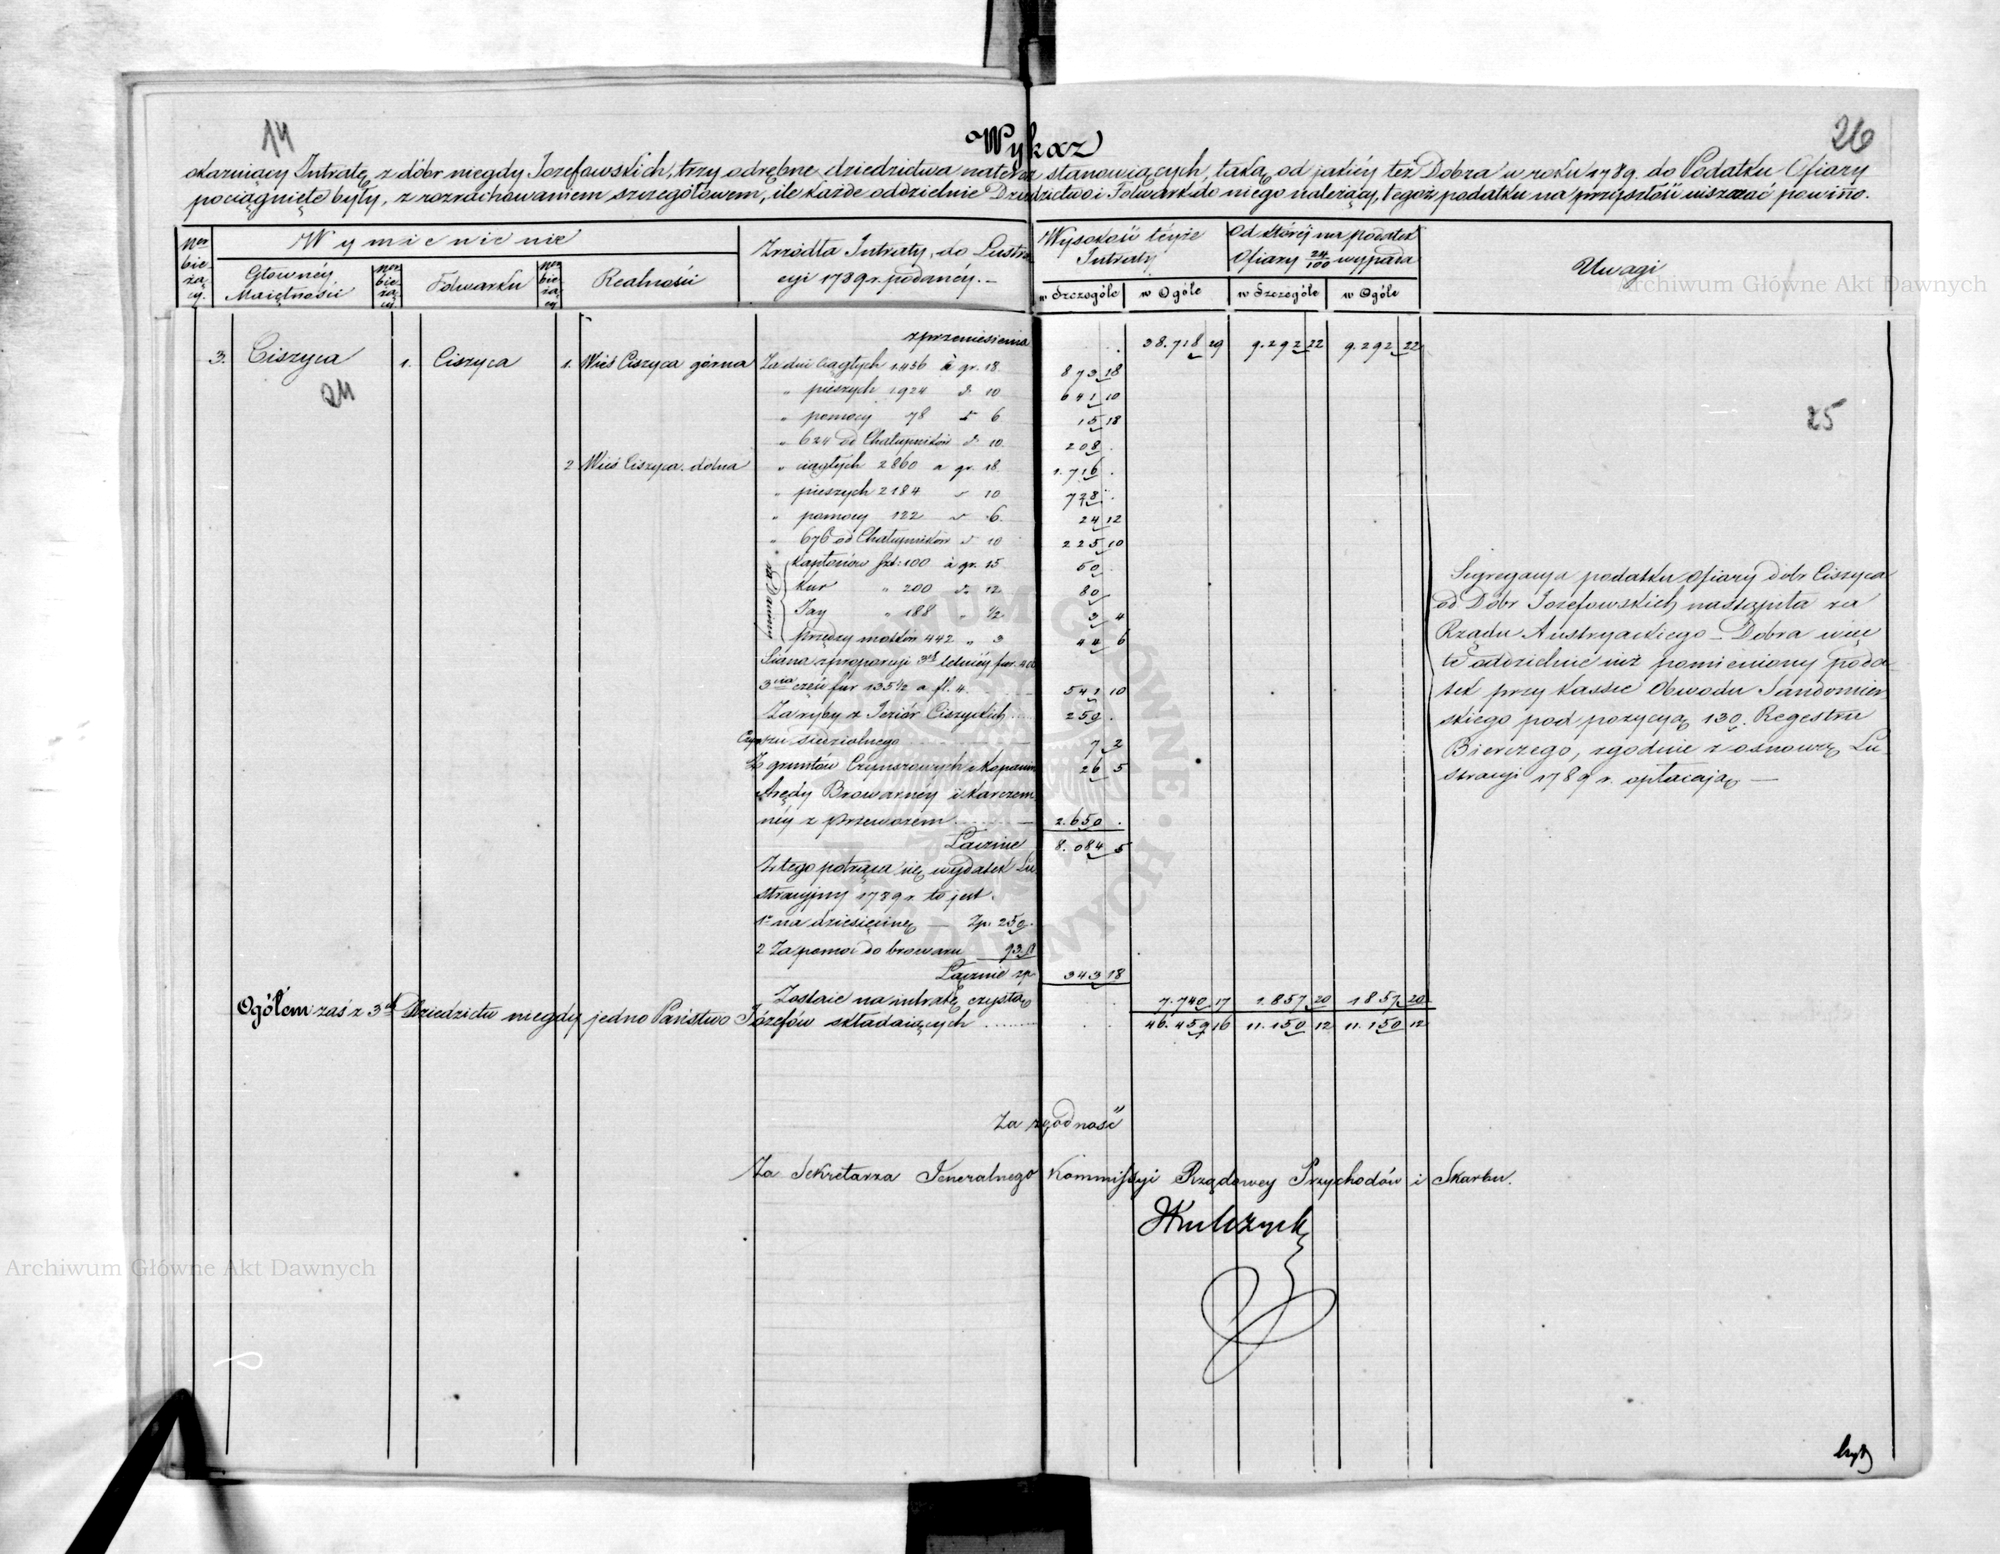 14
26
Wykaz
okazuiący Intratę z dóbr niegdy Jozefowskich, trzy odrębne dziedzictwa na teraz stanowiących, taką od jakiéy też Dobra w roku 1789 do Podatku Ofiary
pociągnięte były, z rozrachowaniem szczegółowem, ile każde oddzielnie Dziedzictwo i Folwark do niego należący, tegoż podatku na przyszłość uiszczać powinno.
Nor bie-żą-cy.
Wymienienie
Głownéy Maiętności
Nor bie-żą-cy
Folwarku
Nor bie-żą-cy
Realności
Zrzódła Intraty, do Lustra-
cyi 1789 r. podanéy.—
Wysokość téyże Intraty
w Szczególe
w Ogóle
Od któréj na podatek Ofiary 24/100 wypada
w Szczególe
w Ogóle
Uwagi
z przeniesienia . 38.718 29 9.292 22 9.292 22
3. Ciszyca 1. Ciszyca 1. Wieś Ciszyca górna Za dni ciągłych 1456 à gr. 18. 873 18
24
" pieszych 1924 d. 10 641 10
" pomocy 78 d. 6 15 18
" 624 od Chałupników d. 10. 208 .
25
2 Wieś Ciszyca dolna " ciągłych 2860 a gr. 18 1.716 .
" pieszych 2184 " 10 728 .
" pomocy 122 " 6. 24 12
" 676 od Chałupników d. 10 225 10
kapłonów szt: 100 à gr. 15 50 .
kur " 200 d. 12 80
Jay " 188 " 1/2 3 4
przędzy motków 442 " 3 44 6
Siana z proporcyi 3ch letniéy fur. 406
3cia część fur 135 1/2 a fl. 4. 541 10
Za ryby z Jeziór Ciszyckich 259 .
Czynszu siedzialnego 7 2
Z gruntów Czynszowych i Kopanin 26 5
Arędy Browarnéy i karczem
néy z przewozem 2.650 .
Łącznie 8.084 5
Z tego potrąca się wydatek Lu
stracyiny 1789 r. to jest.
1o na dziesięcinę — Zp. 250.
2 Za pomoc do browaru 93.18
Łącznie zp. 343 18
Zostaie na intratę czystą 7.740 17 1.857 20 1857 20
Ogółem zaś z 3ch Dziedzictw niegdy jedno Państwo Józefów składaiących . 46.459 16 11.150 12 11.150 12
Segregacya podatku Ofiary dobr Ciszyca
od Dóbr Jozefowskich nastąpiła za
Rządu Austryackiego. Dobra więc
te oddzielnie już pomieniony poda
tek przy kassie Obwodu Sandomier
skiego pod pozycyą 130. Regestru
Bierczego, zgodnie z osnową Lu
stracyi 1789 r. opłacają —
Za zgodność
Za Sekretarza Jeneralnego Kommissyi Rządowey Przychodów i Skarbu.
Archiwum Główne Akt Dawnych
Archiwum Główne Akt Dawnych